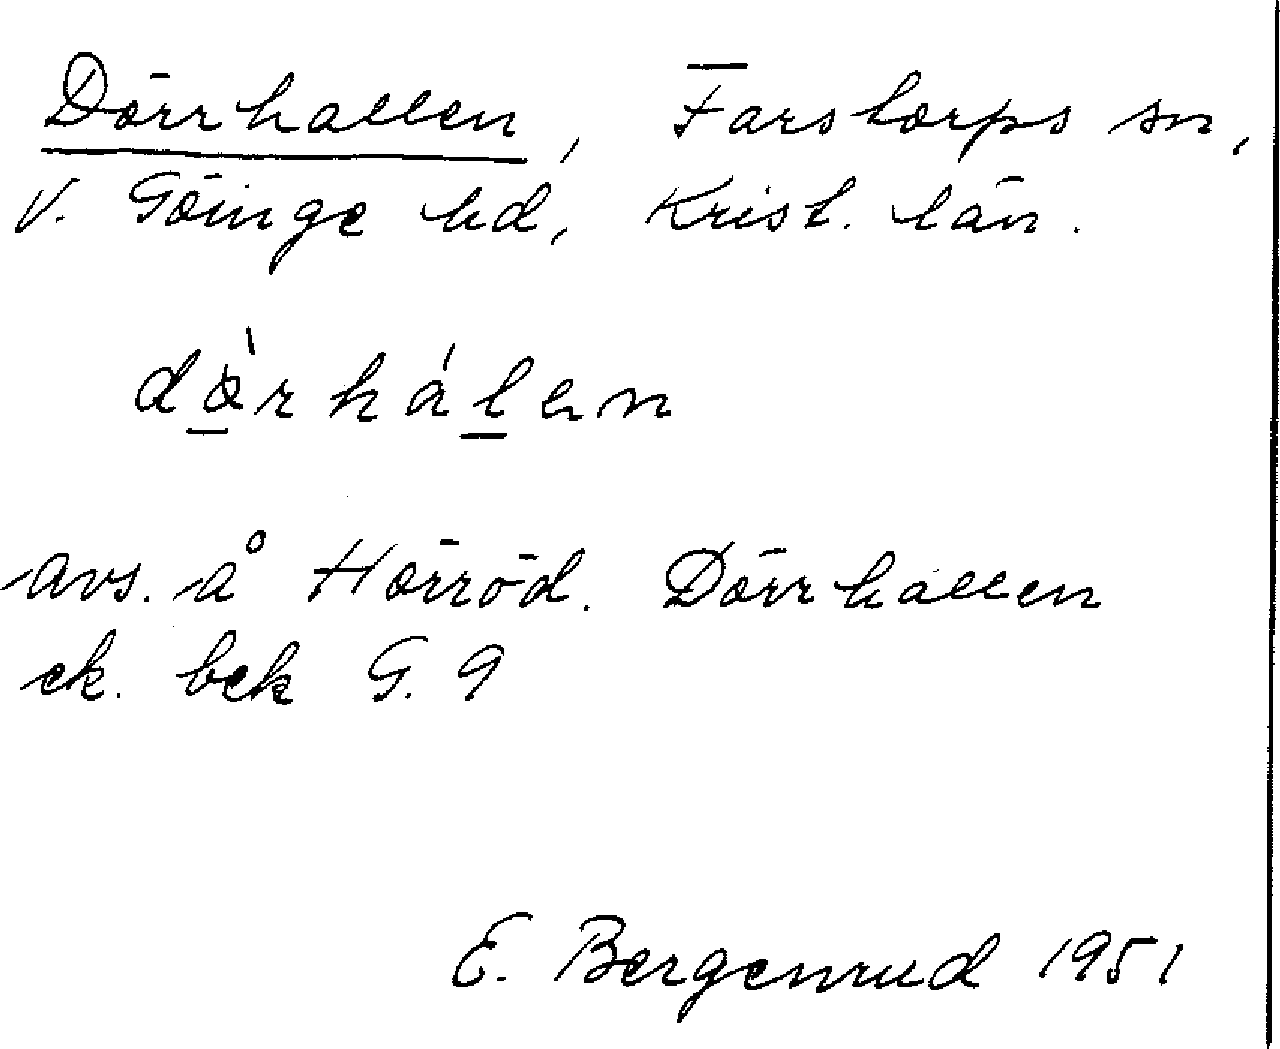 Dörrhallen, Farstorps sn,
V. Göinge hd, Krist. län.
dàrhálen
avs. å Hörröd. Dörrhallen
ek. bek G. 9
E. Bergenrud 1951